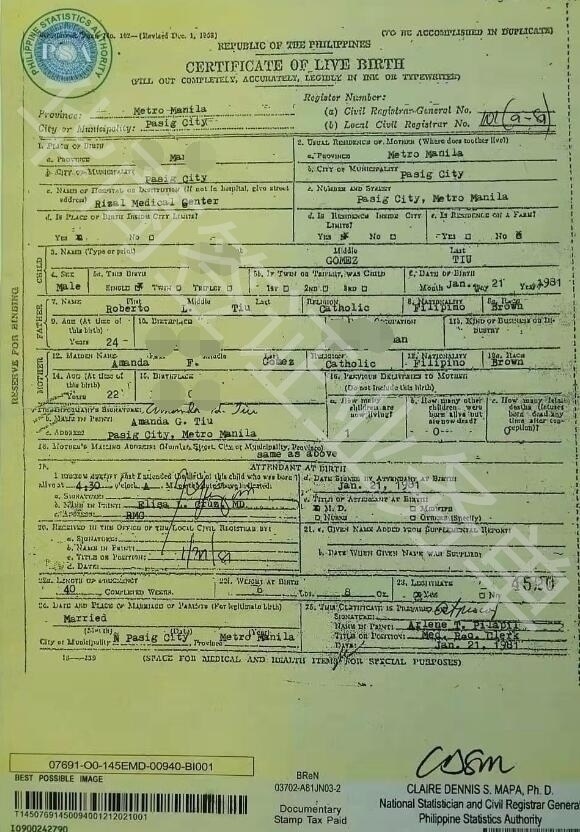 PHILIPPINE STATISTICS AUTHORITY
PSA
Form No. 102—(Revised Dec. 1, 1958) (TO BE ACCOMPLISHED IN DUPLICATE)
REPUBLIC OF THE PHILIPPINES
CERTIFICATE OF LIVE BIRTH
(FILL OUT COMPLETELY, ACCURATELY, LEGIBLY IN INK OR TYPEWRITER)
Register Number:
Province: Metro Manila (a) Civil Registrar-General No.
City or Municipality: Pasig City (b) Local Civil Registrar No. 101(a-8)
1. PLACE OF BIRTH 2. USUAL RESIDENCE OF MOTHER (Where does mother live?)
a. PROVINCE a. PROVINCE Metro Manila
b. CITY OR MUNICIPALITY Pasig City b. CITY OR MUNICIPALITY Pasig City
c. NAME OF HOSPITAL OR INSTITUTION (If not in hospital, give street address) Rizal Medical Center c. NUMBER AND STREET Pasig City, Metro Manila
d. IS PLACE OF BIRTH INSIDE CITY LIMITS? d. IS RESIDENCE INSIDE CITY LIMITS? e. IS RESIDENCE ON A FARM?
YES NO YES NO YES NO
RESERVE FOR BINDING
CHILD
3. NAME (Type or print) Middle GOMEZ Last TIU
4. SEX Male 5a. THIS BIRTH SINGLE TWIN TRIPLET 5b. IF TWIN OR TRIPLET, WAS CHILD 1ST 2ND 3RD 6. DATE OF BIRTH Month Jan. Day 21 Year 1981
FATHER
7. NAME First Roberto Middle L. Last Tiu RELIGION Catholic 8. NATIONALITY Filipino 8a. RACE Brown
9. AGE (At time of this birth) Years 24 10. BIRTHPLACE OCCUPATION 11b. KIND OF BUSINESS OR INDUSTRY
MOTHER
12. MAIDEN NAME First Amanda Middle F. Last Gomez RELIGION Catholic 13. NATIONALITY Filipino 13a. RACE Brown
14. AGE (At time of this birth) Years 22 15. BIRTHPLACE 16. PREVIOUS DELIVERIES TO MOTHER (Do not include this birth)
a. How many children are now living? b. How many other children were born alive but are now dead? 0 c. How many fetal deaths (fetuses born dead any time after conception)? 0
17. INFORMANT'S SIGNATURE: Amanda G. Tiu
b. NAME IN PRINT: Amanda G. Tiu
c. ADDRESS Pasig City, Metro Manila
18. MOTHER'S MAILING ADDRESS (Number, Street, City or Municipality, Province) same as above
19. ATTENDANT AT BIRTH
I HEREBY CERTIFY that I attended the birth of this child who was born alive at 4:30 o'clock A M
d. DATE SIGNED BY ATTENDANT AT BIRTH Jan. 21, 1981
a. SIGNATURE: e. TITLE OF ATTENDANT AT BIRTH
b. NAME IN PRINT: Elisa L. Cruz, MD M. D. MIDWIFE
c. ADDRESS: RMC NURSE OTHERS (Specify)
20. RECEIVED IN THE OFFICE OF THE LOCAL CIVIL REGISTRAR BY: 21. a. GIVEN NAME ADDED FROM SUPPLEMENTAL REPORT:
a. SIGNATURE:
b. NAME IN PRINT: b. DATE WHEN GIVEN NAME WAS SUPPLIED:
c. TITLE OR POSITION:
d. DATE:
22a. LENGTH OF PREGNANCY 40 COMPLETED WEEKS. 22b. WEIGHT AT BIRTH 6 LBS. 8 OZ. 23. LEGITIMATE YES NO 4520
24. DATE AND PLACE OF MARRIAGE OF PARENTS (For legitimate birth) 25. THIS CERTIFICATE IS PREPARED BY:
Married SIGNATURE:
(Month) (Day) (Year) NAME IN PRINT: Arlene T. Pilapil
City or Municipality Pasig City, Province Metro Manila TITLE OR POSITION: Med. Rec. Clerk
DATE: Jan. 21, 1981
(SPACE FOR MEDICAL AND HEALTH ITEMS FOR SPECIAL PURPOSES)
07691-O0-145EMD-00940-BI001
BEST POSSIBLE IMAGE
T145076914500940012120210​01
I0900242790
BReN
03702-A81JN03-2
Documentary
Stamp Tax Paid
CLAIRE DENNIS S. MAPA, Ph. D.
National Statistician and Civil Registrar General
Philippine Statistics Authority